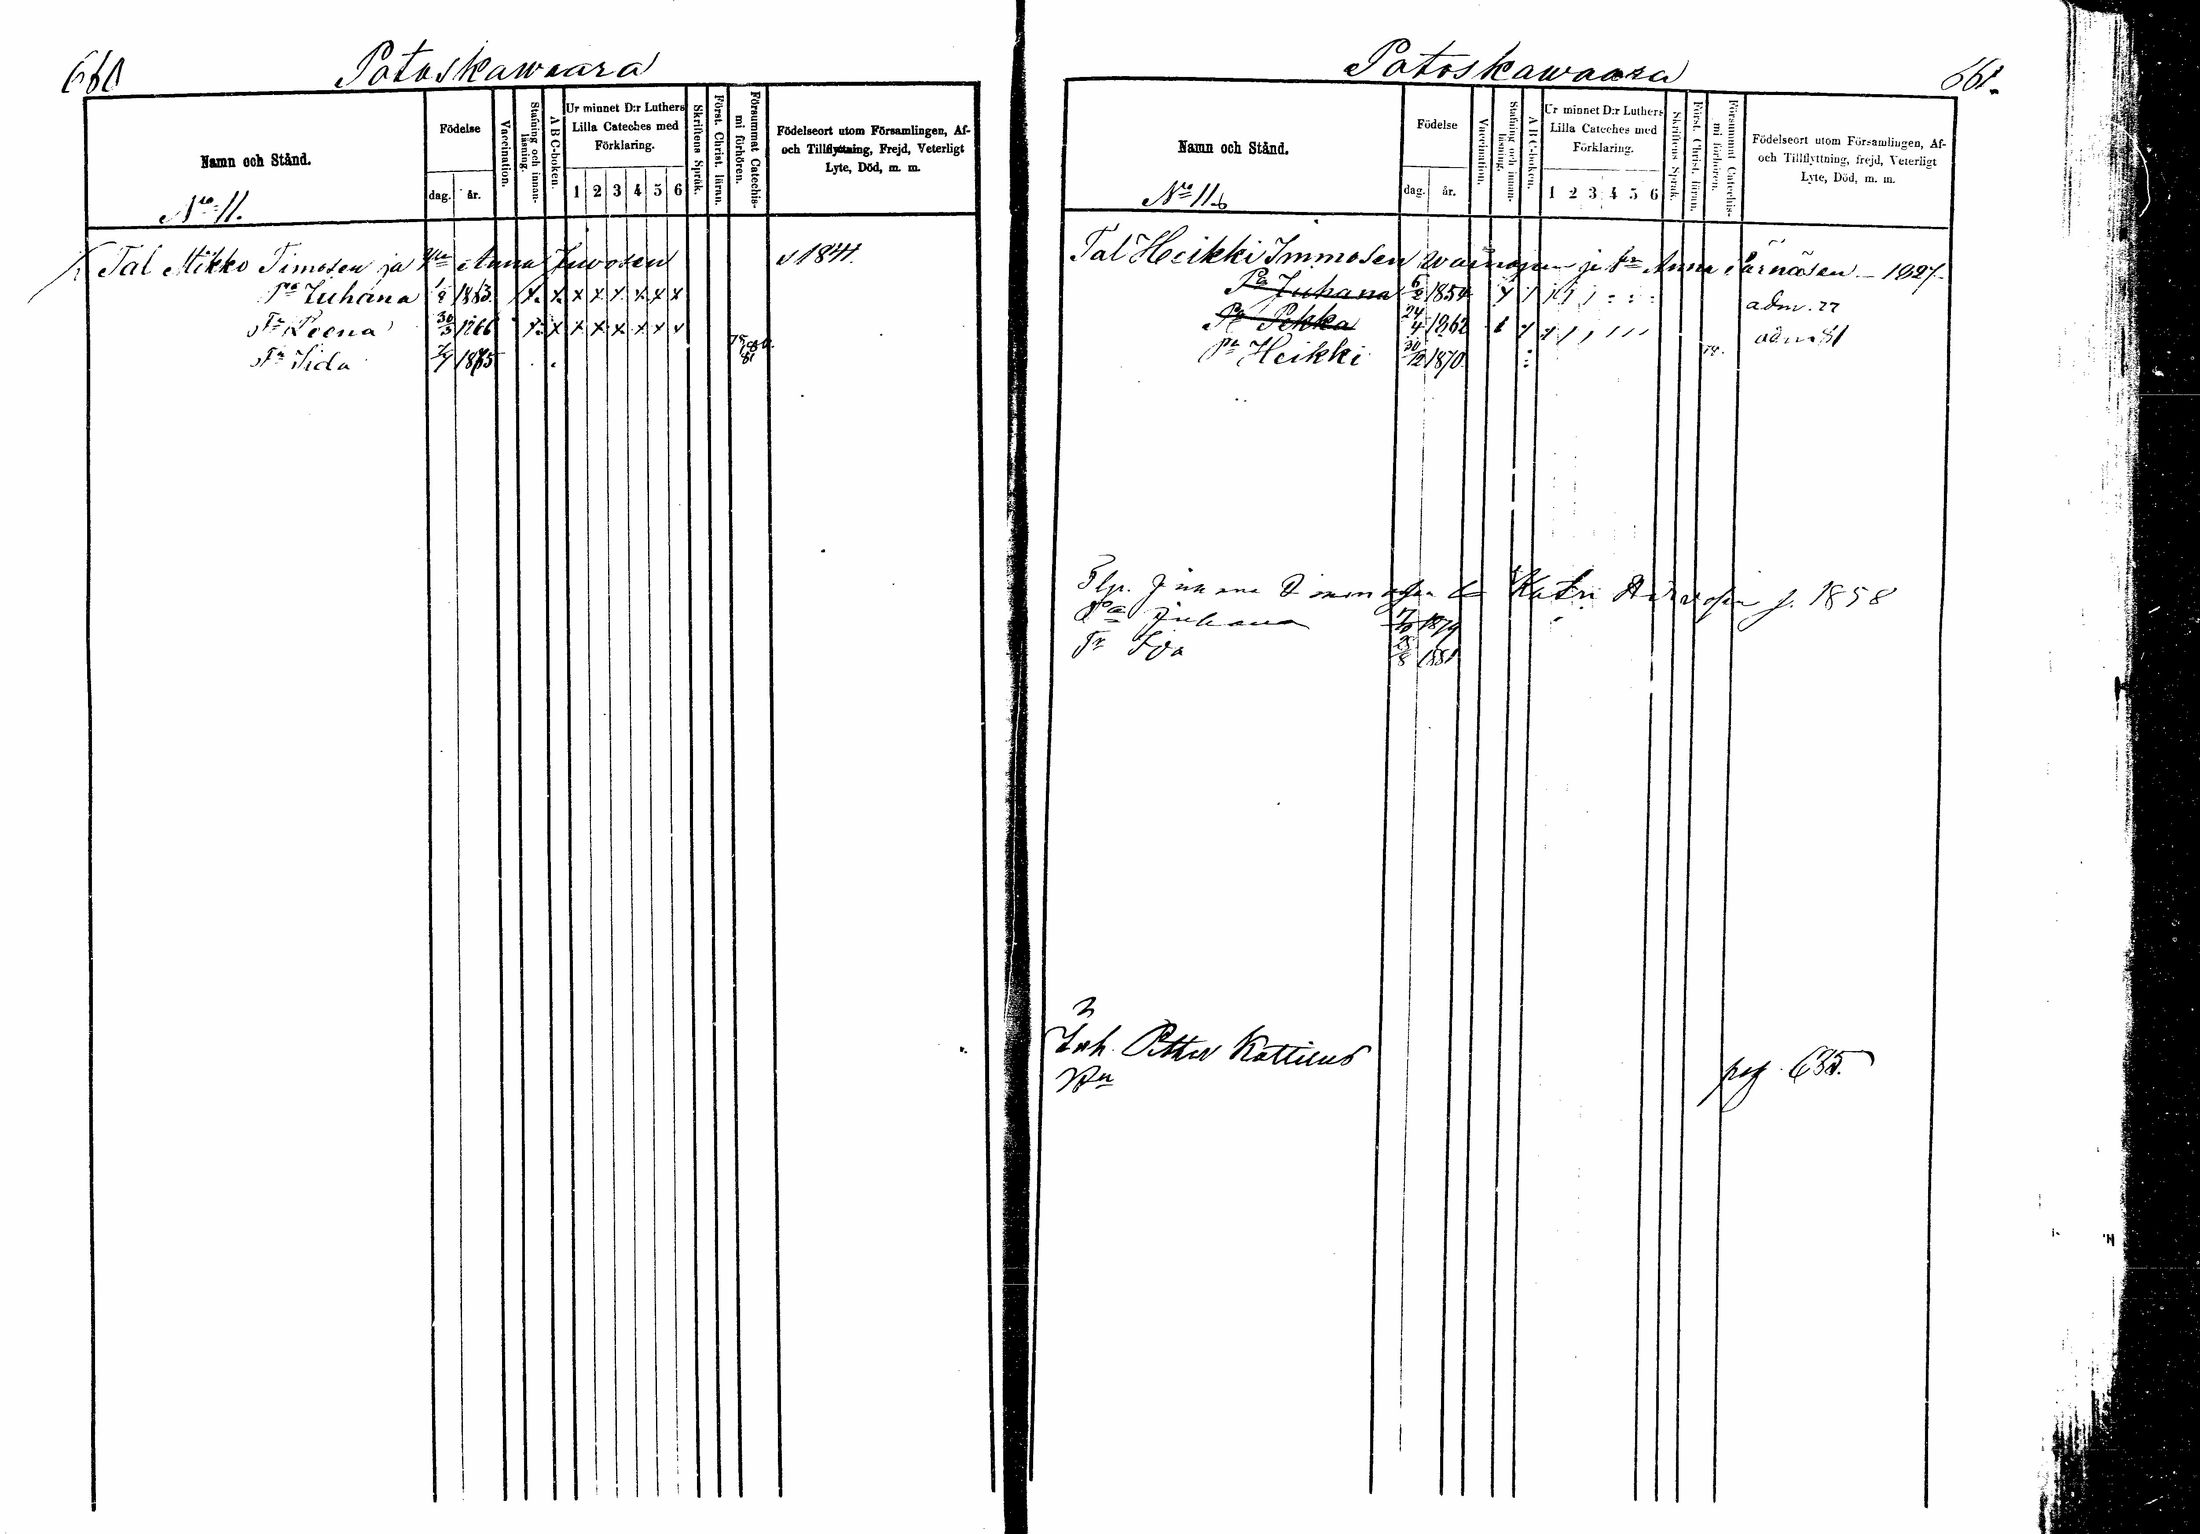 660 Potoskawaara
Namn och Stånd.
Födelse
dag. år.
Vaccination.
Stafning och innan-läsning.
A B C-boken.
Ur minnet D:r Luthers Lilla Cateches med Förklaring.
1 2 3 4 5 6
Skriftens Språk.
Först. Christ. läran.
Försummat Catechis-mi förhören.
Födelseort utom Församlingen, Af- och Tillflyttning, Frejd, Veterligt Lyte, Död, m. m.
No 11.
Tal Mikko Timosen ja Anna Juvosen 1841.
Pa Juhana 1/2 1863 x x x x x x x x
Tr Leena 30/3 1866 x x x x x x x x
Tr Iida 1875
Potoskawaara 661.
Namn och Stånd.
Födelse
dag. år.
Vaccination.
Stafning och innan-läsning.
A B C-boken.
Ur minnet D:r Luthers Lilla Cateches med Förklaring.
1 2 3 4 5 6
Skriftens Språk.
Först. Christ. läran.
Försummat Catechis-mi förhören.
Födelseort utom Församlingen, Af- och Tillflyttning, frejd, Veterligt Lyte, Död, m. m.
No 11 b
Tal Heikki Immosen wainajan ja Anna Pärnäsen - 1827.
Pa Juhana 6/2 1854 adm. 77
Pa Pekka 24/4 1862 adm 81
Pa Heikki 30/12 1870. 79.
Juhana Immosen Katri f. 1858
Pa Juhana 1879
Tr Eva 1881
Inh. Petter Kattilus
pag. 635.